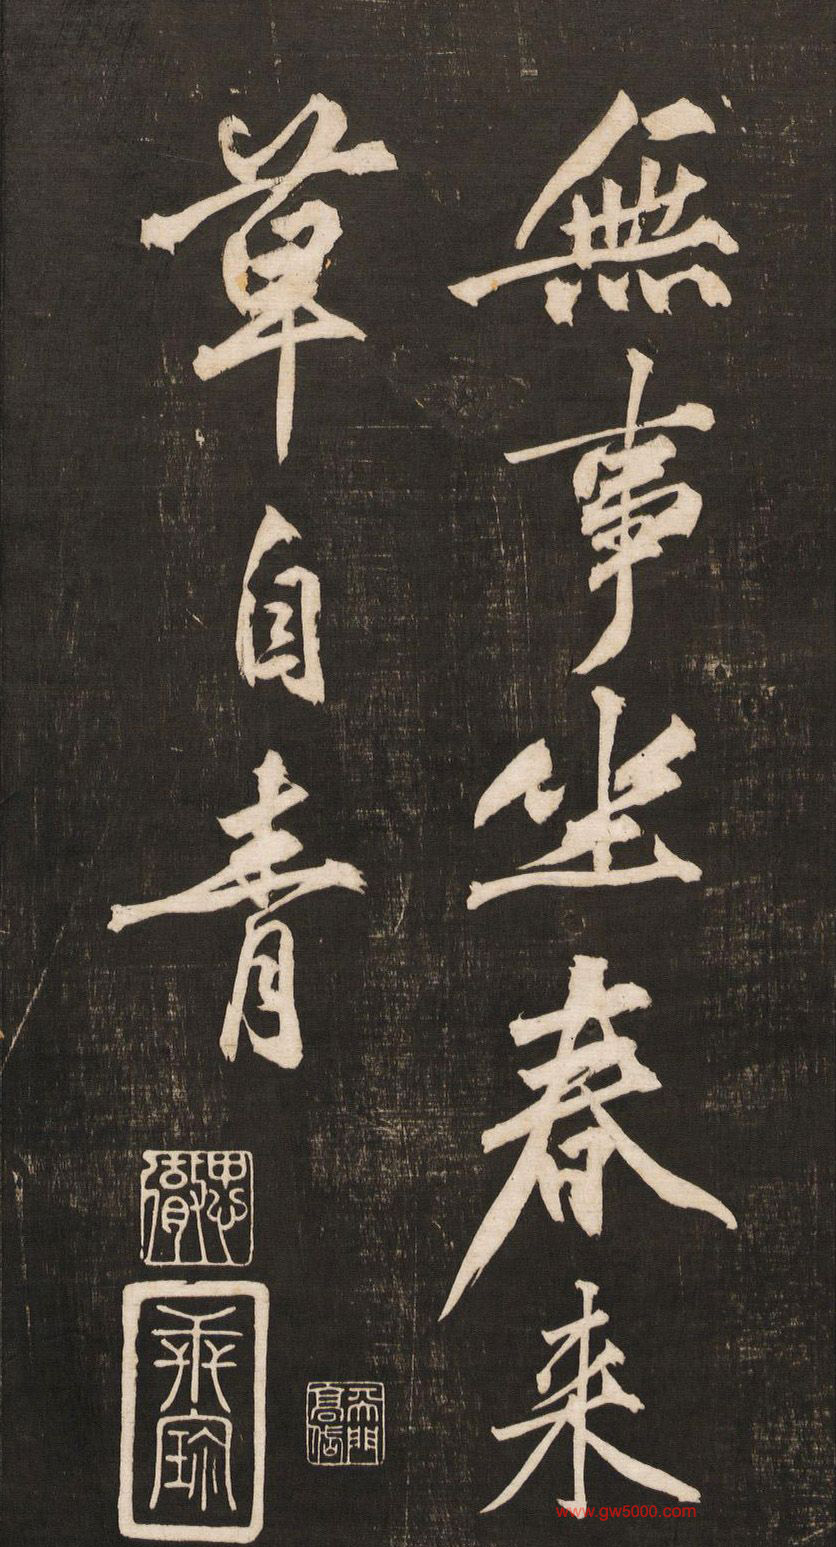 無事坐春来
草自青
www.gw5000.com